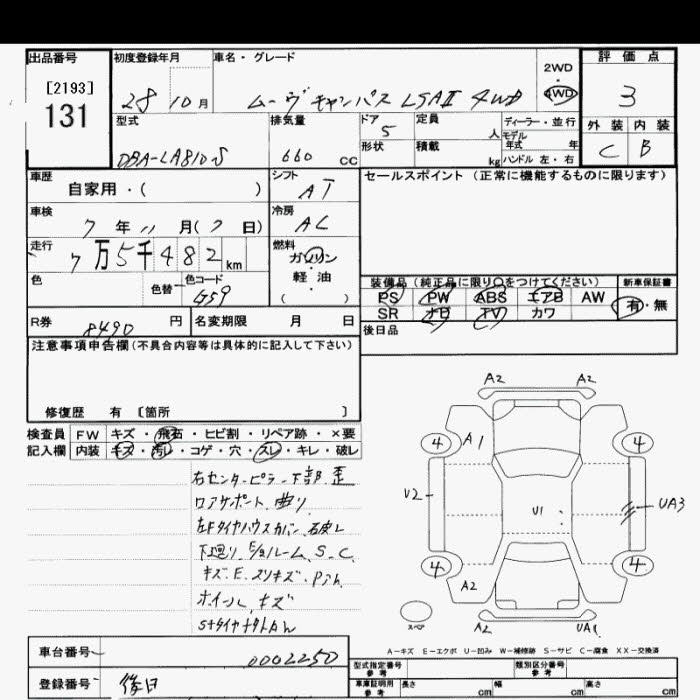 出品番号 初度登録年月 車名・グレード 2WD・4WD 評価点
[2193]
131
28 10月 ムーヴキャンバス LSAⅡ 4WD 3
型式 排気量 ドア 定員 人 ディーラー・並行 外装 内装
形状 積載 kg モデル年式 年
DBA-LA810S 660 cc 5 ハンドル 左・右 C B
車歴 自家用・( ) シフト AT セールスポイント (正常に機能するものに限ります)
車検 7年11月(7日) 冷房 AC
走行 7万5千482km 燃料 ガソリン・軽油 ( )
色 色替 色コード G59
装備品(純正品に限り〇をつけてください) 新車保証書
PS PW ABS エアB AW 有・無
SR ナビ TV カワ
R券 8490円 名変期限 月 日 後日品
注意事項申告欄(不具合内容等は具体的に記入して下さい)
修復歴 有 〔箇所 〕
検査員 FW キズ・飛石・ヒビ割・リペア跡・×要
記入欄 内装 キズ・汚レ・コゲ・穴・スレ・キレ・破レ
右センターピラー下部歪
ロアサポート曲り
左Fタイヤハウスカバー
下廻り E/gルーム S.C
キズ.E.スリキズ.
ホイールキズ
A2 A2
4 A1 4
U2 U1 UA3
4 A2 4
スペア A2 UA1
A-キズ E-エクボ U-凹み W-補修跡 S-サビ C-腐食 XX-交換済
車台番号 0002250
登録番号 後日
型式指定番号 参考 類別区分番号 参考
車庫証明用 参考 長さ cm 幅 cm 高さ cm